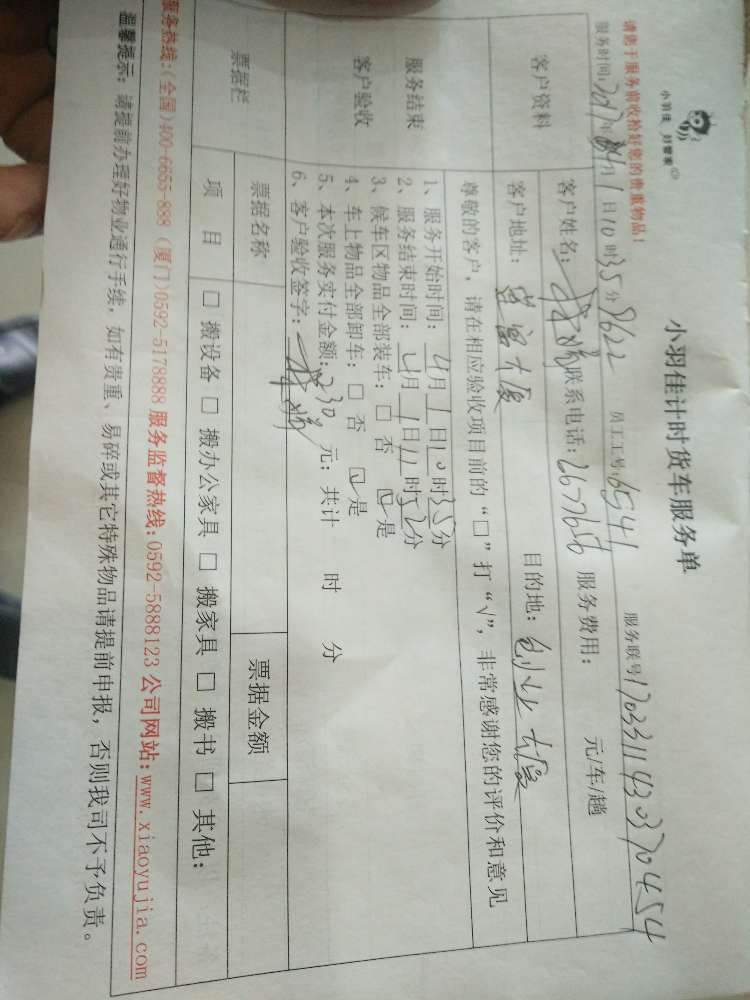 小羽佳 好管家
小羽佳计时货车服务单
请您于服务前收拾好您的贵重物品!
服务时间:2017年4月1日10时35分 8622 员工工号:6541 服务联号170331143037 0454
客户资料
客户姓名: 联系电话:2677656 服务费用: 元/车/趟
客户地址: 蓝富大厦 目的地: 创业大厦
尊敬的客户,请在相应验收项目前的“□”打“√”,非常感谢您的评价和意见
服务结束
客户验收
1、服务开始时间:4月1日10时35分
2、服务结束时间:4月1日11时52分
3、候车区物品全部装车:□ 否 ☑是
4、车上物品全部卸车:□ 否 ☑是
5、本次服务实付金额:230元;共计 时 分
6、客户验收签字:
票据栏 票据名称 票据金额
项 目 □ 搬设备 □ 搬办公家具 □ 搬家具 □ 搬书 □ 其他:
服务热线:(全国)400-6655-888 (厦门)0592-5178888 服务监督热线:0592-5888123 公司网站:www.xiaoyujia.com
温馨提示:请提前办理好物业通行手续,如有贵重、易碎或其它特殊物品请提前申报,否则我司不予负责。